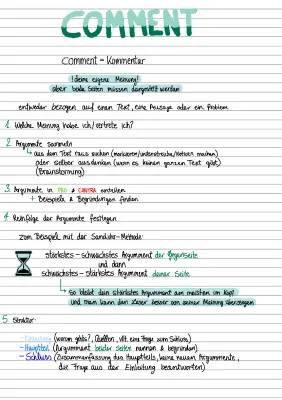 COMMENT
Comment - Kommentar
!deine eigene Meinung!
aber beide Seiten müssen dargestellt werden
entweder bezogen auf einen Text, eine Aussage oder ein Problem
1. Welche Meinung habe ich/vertrete ich?
2. Argumente sammeln
↳ aus dem Text raus suchen (markieren/unterstreichen/Notizen machen)
oder selber ausdenken (wenn es keinen ganzen Text gibt)
(Brainstorming)
3. Argumente in PRO & CONTRA einteilen
+ Beispiele & Begründungen finden
4. Reihenfolge der Argumente festlegen
zum Beispiel mit der Sanduhr-Methode:
stärkstes - schwächstes Argument der Gegenseite
und dann
schwächstes - stärkstes Argument deiner Seite
↳ so bleibt dein stärkstes Argument am meisten im Kopf
und man kann den Leser besser von seiner Meinung überzeugen
5. Struktur
- Einleitung (worum gehts?, Quellen, vllt. eine Frage zum Schluss)
- Hauptteil (Argumente beider Seiten nennen & begründen)
- Schluss (Zusammenfassung des Hauptteils, keine neuen Argumente,
die Frage aus der Einleitung beantworten)